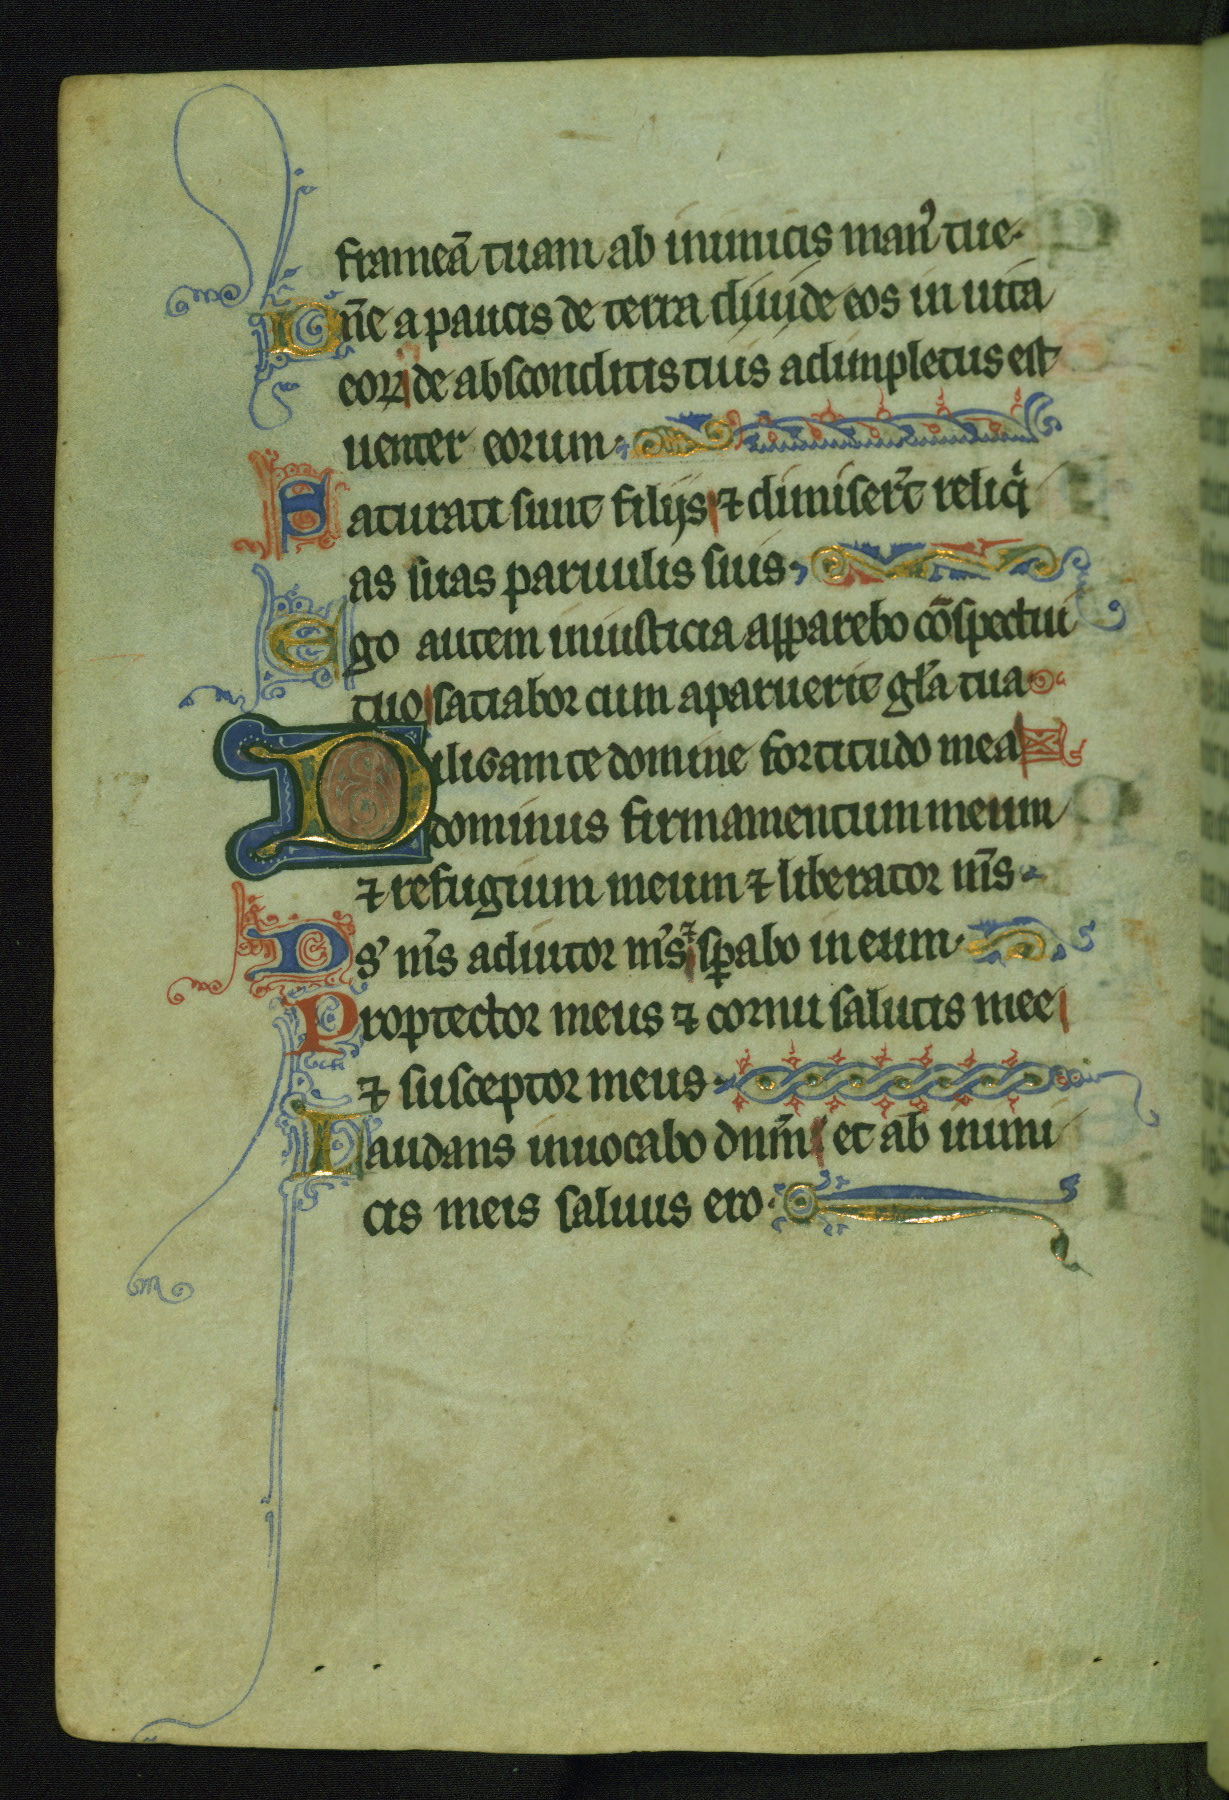 frameā tuam ab inimicis man᾽ tue·
Dn̄e a paucis de terra diuide eos in uita
eoꝝ de absconditis tuis adimpletus est
uenter eorum·
Saturati sunt filijs ⁊ dimiserūt reliq̇
as suas paruulis suis·
Ego autem iniusticia apparebo cōspectui
tuo satiabor cum aparuerit gl̄a tua
Diligam te domine fortitudo mea
dominus firmamentum meum
⁊ refugium meum ⁊ liberator m̄s·
Ds᾽ m̄s adiutor m̄s ⁊ sꝑabo in eum·
Proptector meus ⁊ cornu salutis mee
⁊ susceptor meus·
Laudans inuocabo dnm̄ et ab inimi
cis meis saluus ero·